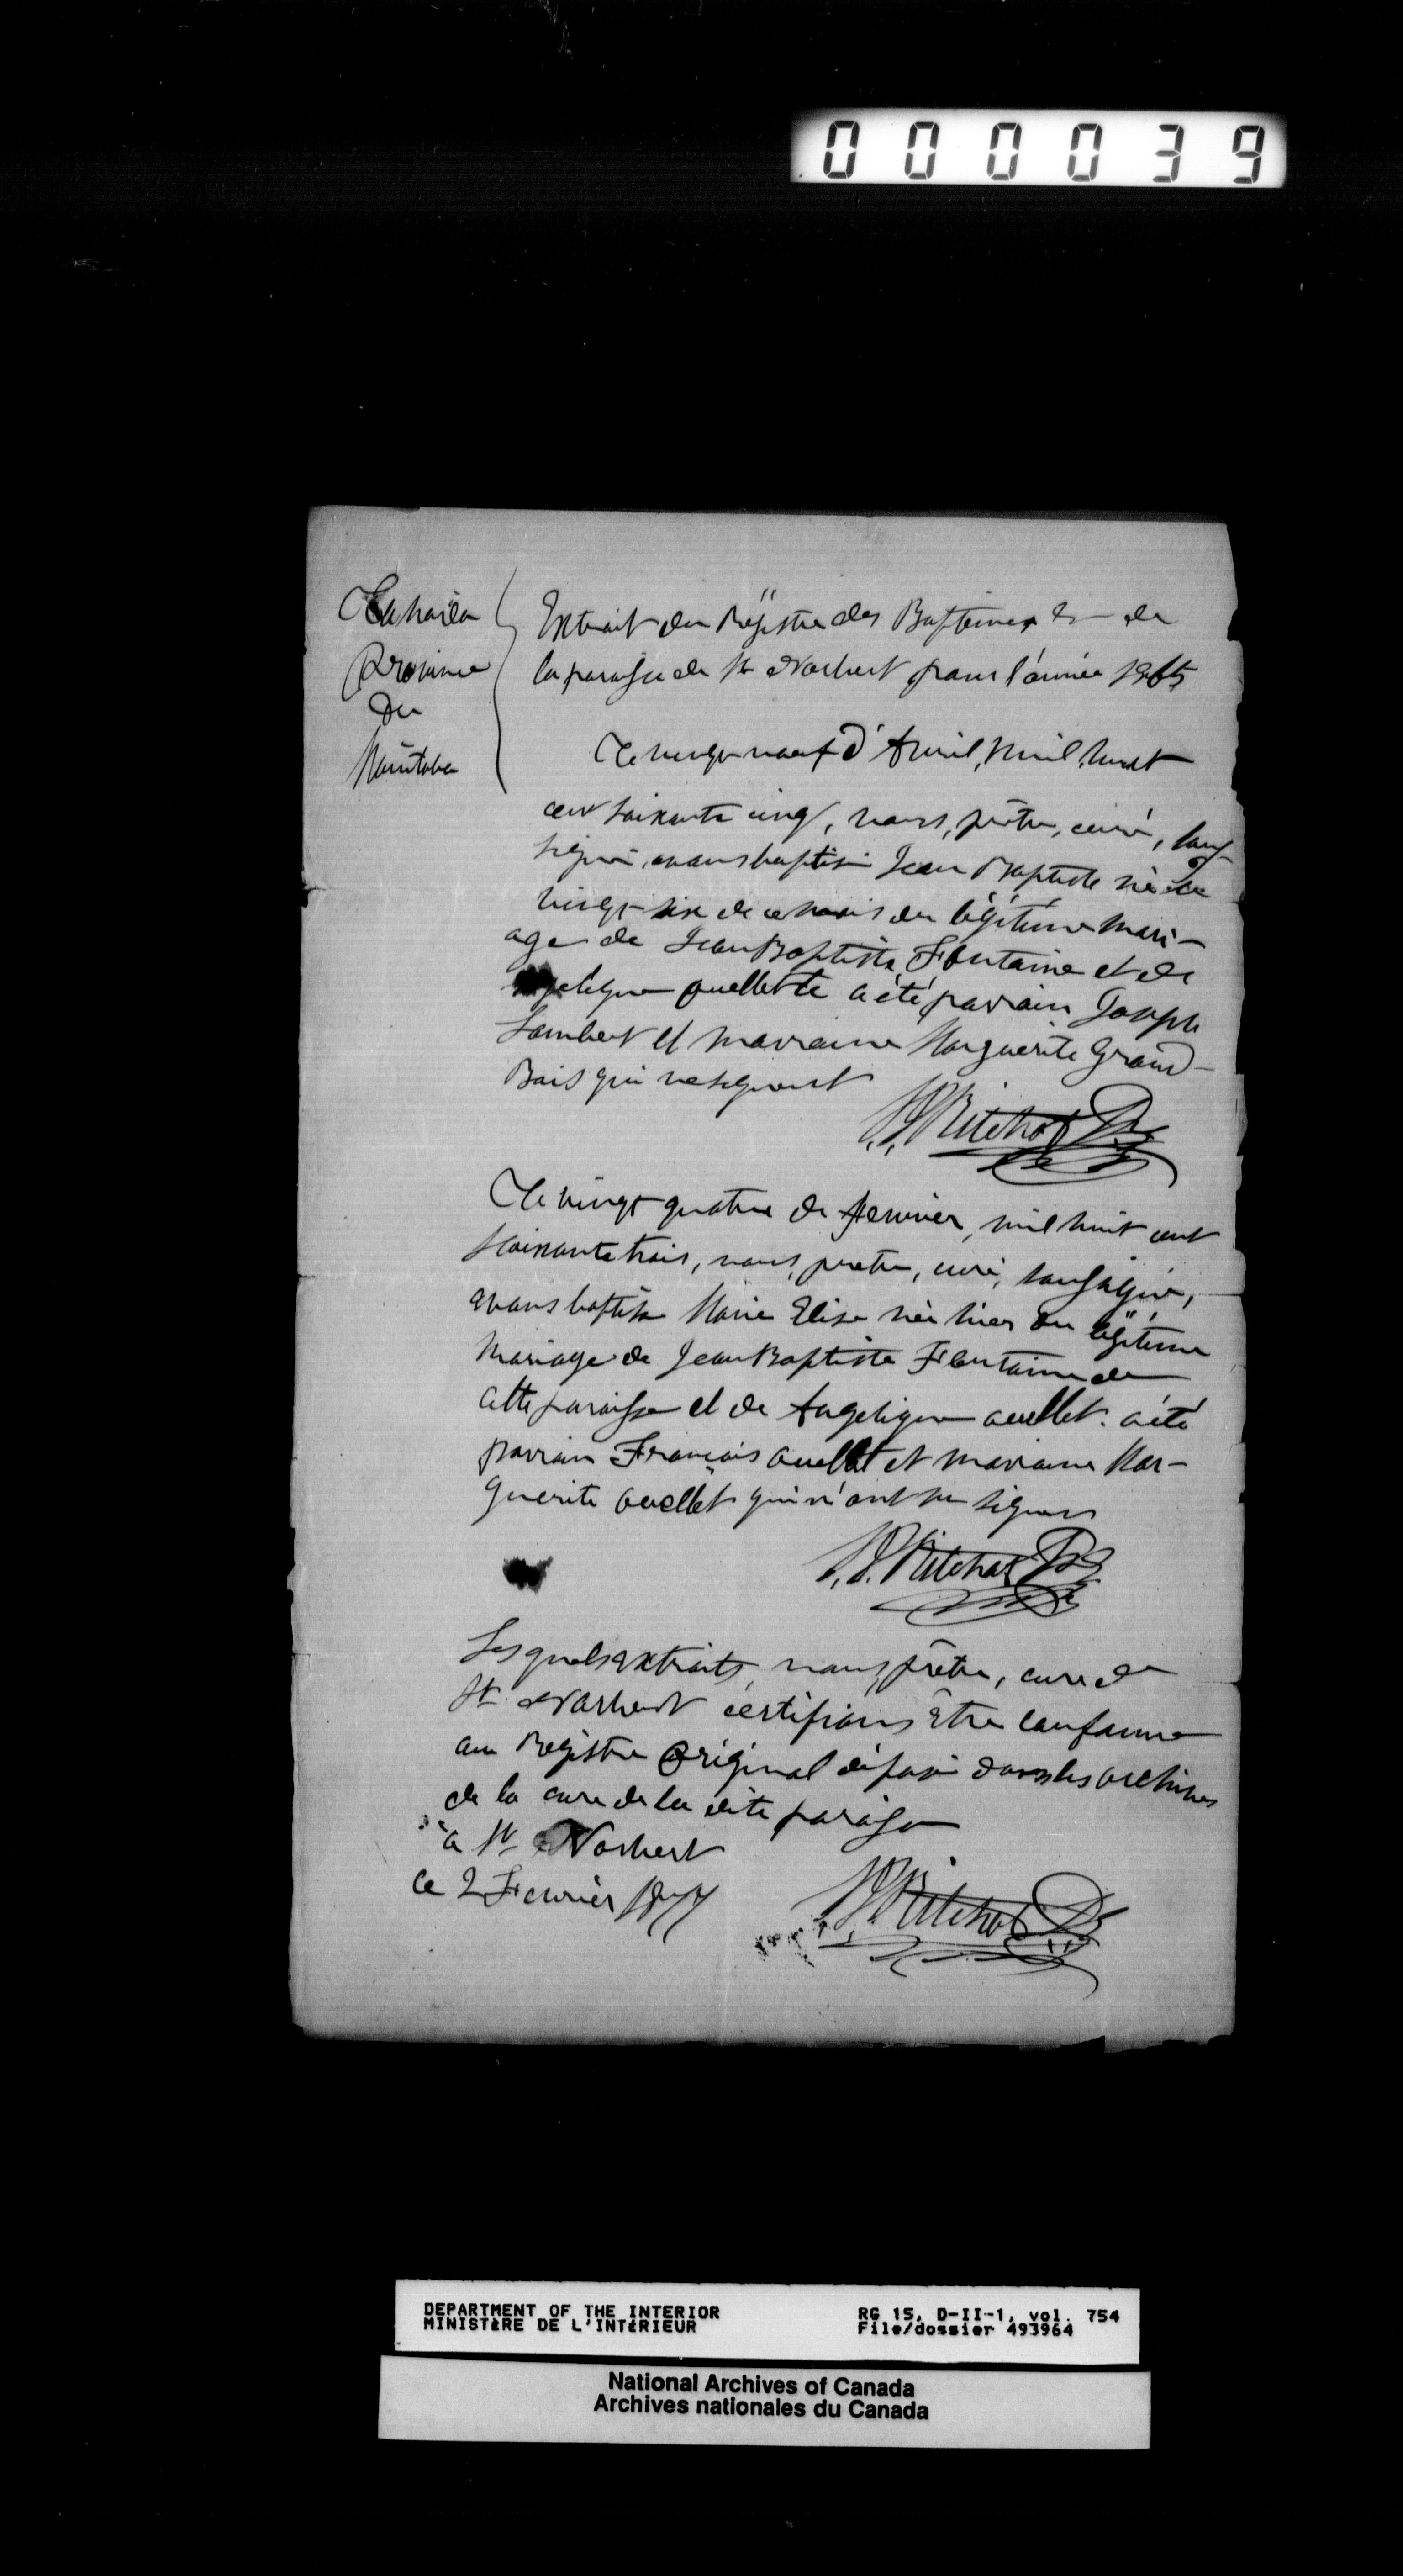 000039
Canada
Province
du
Manitoba
Extrait du Régistre des Baptemes &c de
la paroisse de St Norbert pour l'année 1865
Le vingt neuf d'Avril, mil huit
cent soixante cinq, nous, prêtre, curé, sous-
signé, avons baptisé Jean Baptiste né le
vingt-six de ce mois du légitime mari-
age de Jean Baptiste Fontaine et de
Angelique Ouellette a été parrain Joseph
Lambert et marraine Marguerite Grand-
Bois qui ne signent
N. J. Ritchot Ptre
Le vingt quatre de fevrier, mil huit cent
soixante trois, nous, pretre, curé, soussigné,
avons baptisé Marie Elise née hier du légitime
mariage de Jean Baptiste Fontaine de
cette paroisse et de Angelique Ouellet. a été
parrain François Ouellet et marraine Mar-
guerite Ouellet qui n'ont su signer
N. J. Ritchot Ptre
Lesquels extraits, nous, prêtre, curé de
St Norbert certifions être conforme
au Régistre Original déposé dans les archives
de la cure de la dite paroisse
à St Norbert
ce 2 Fevrier 1877
N. J. Ritchot Ptre
DEPARTMENT OF THE INTERIOR RG 15, D-II-1, vol. 754
MINISTÈRE DE L'INTÉRIEUR File/dossier 493964
National Archives of Canada
Archives nationales du Canada